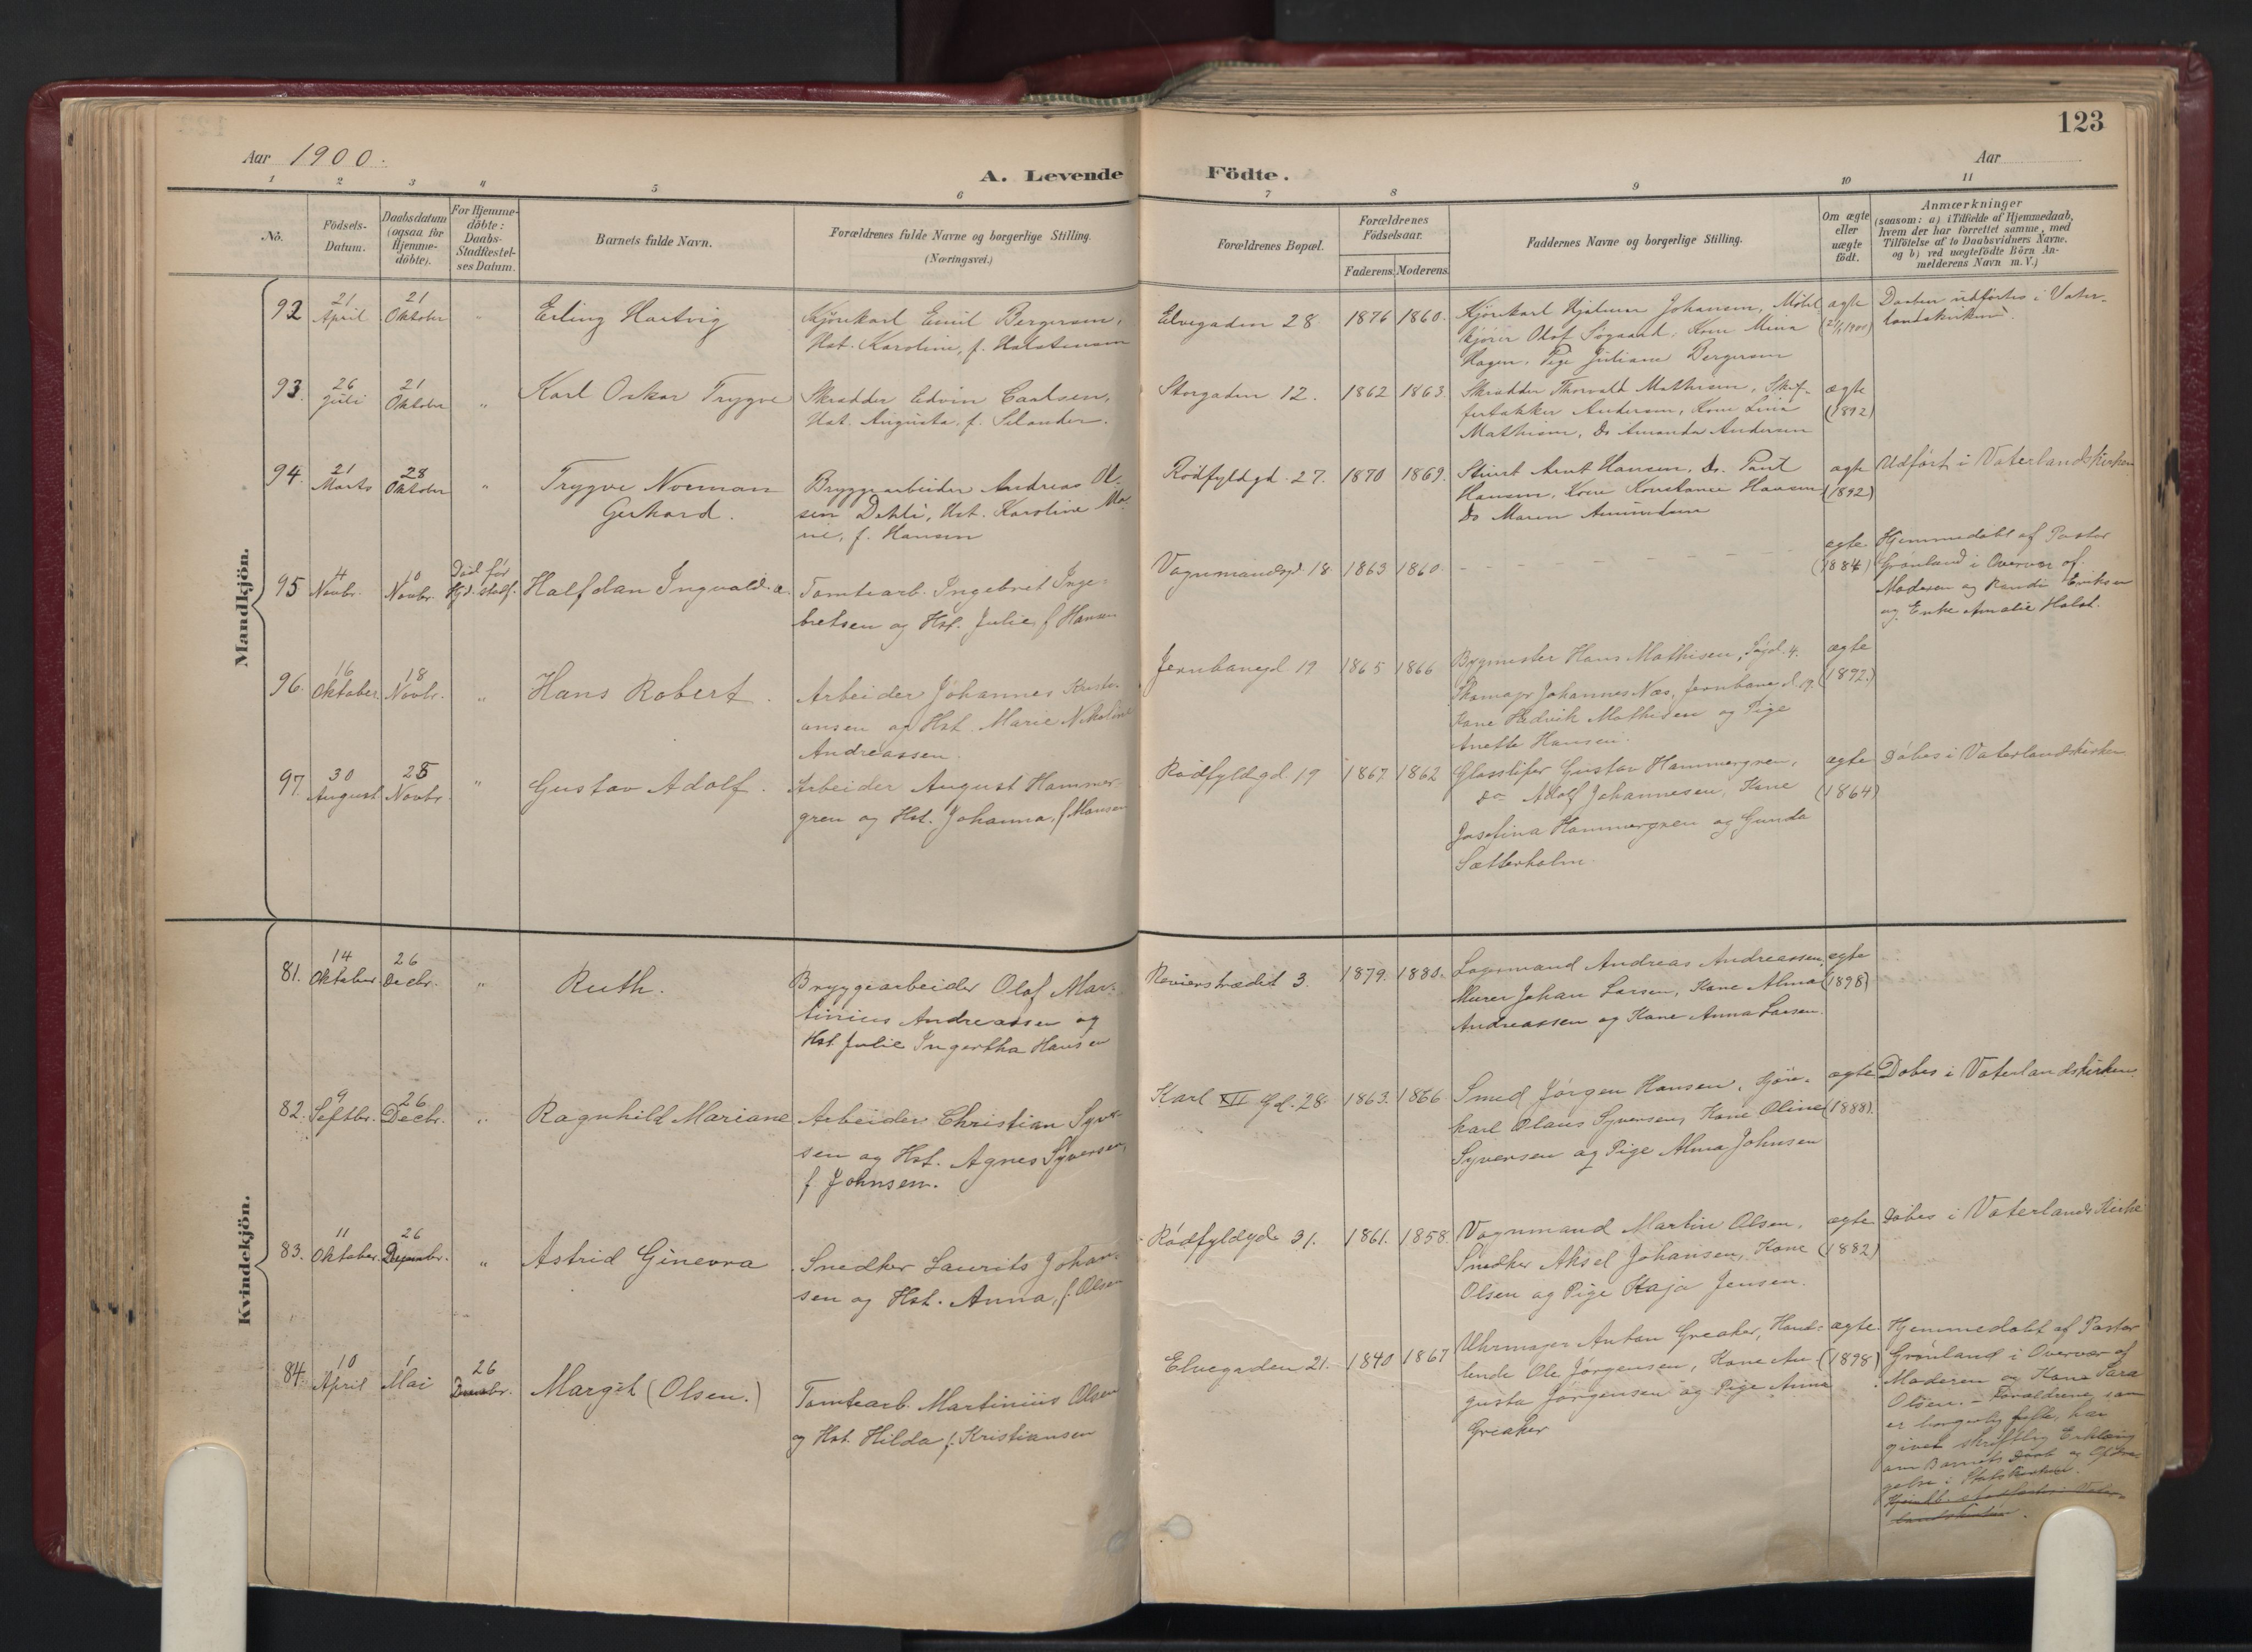 123
Aar 1900.
Aar
A. Levende Födte.
1 2 3 4 5 6 7 8 9 10 11
No.
Födsels-
Datum.
Daabsdatum
(ogsaa for
Hjemme-
döbte).
For Hjemme-
döbte:
Daabs-
Stadfæstel-
ses Datum.
Barnets fulde Navn.
Forældrenes fulde Navne og borgerlige Stilling.
(Næringsvei.)
Forældrenes Bopæl.
Forældrenes
Födselsaar.
Faderens.
Moderens.
Faddernes Navne og borgerlige Stilling.
Om ægte
eller
uægte
födt.
Anmærkninger
(saasom: a) i Tilfælde af Hjemmedaab,
hvem der har forrettet samme, med
Tilföielse af to Daabsvidners Navne.
og b) ved uægtefödte Börn An-
melderens Navn m. V.)
Mandkjön.
92
21
April
21
Oktober
Erling Hartvig
Kjørekarl Emil Bergersen,
Hst. Karoline, f. Halstensen
Elvegaden 28
1876
1860.
Kjørekarl Hjalmar Johansen, Møbel
kjører Olof Søgaard, Kone Mina
Hagen, Pige Juliane Bergersen
ægte
Daaben udførtes i Vater-
landskirken.
93.
26
Juli
21
Oktober
"
Karl Oskar Trygve
Skrædder Edvin Carlsen,
Hst. Augusta, f. Selander.
Storgaden 12.
1862
1863
Skrædder Thorvald Mathisen, Skif-
fertækker Andersen, Kone Lina
Mathisen, do Amanda Andersen
ægte
(1892)
94.
21
Marts
28
Oktober
"
Trygve Norman
Gerhard.
Bryggearbeider Andreas Ol-
sen Dehli, Hst. Karoline Ma-
rie, f. Hansen
Rødfyldgd. 27.
1870
1869.
Stuert Arnt Hansen, Do. Paul
Hansen, Kone Konstance Hansen
do Maren Amundsen
ægte
(1892)
Udført i Vaterlandskirken
95
4
Novbr.
10
Novbr.
Død før
Hjd. stadf.
Halfdan Ingvald.
Tomtearb. Ingebret Inge-
bretsen og Hst. Julie, f. Hansen
Vognmandsgd. 18
1863
1860
ægte
(1884)
Hjemmedøbt af Pastor
Grønland i Overvær af
Moderen og Randi Eriksen
og Enke Amalie Holst.
96.
16
Oktober
18
Novbr.
"
Hans Robert.
Arbeider Johannes Kristi-
ansen og Hst. Marie Nikoline
Andreassen.
Jernbanegd 19
1865
1866
Bygmester Hans Mathisen, 4.
Skomagr Johannes Næs, Jernbanegd. 19.
Kone Hedvik Mathisen og Pige
Anette Hansen.
ægte
(1892.)
97.
30
August
25
Novbr.
"
Gustav Adolf.
Arbeider August Hammer-
gren og Hst. Johanna, f. Hansen
Rødfyldgd. 19
1867
1862
Glassliper Gustav Hammergren,
do Adolf Johannesen, Kone
Josefina Hammergren og Gunda
Sætterholm
ægte
(1864)
Døbes i Vaterlandskirken
Kvindekjön.
81.
14
Oktober
26
Decbr.
"
Ruth.
Bryggearbeider Olof Mar-
tinius Andreassen og
Hst. Julie Ingertha Hansen
Revierstrædet 3.
1879.
1880.
Lagermand Andreas Andreassen,
Murer Johan Larsen, Kone Alma
Andreassen og Kone Anna Larsen.
ægte
(1898)
82.
9
Septbr.
26
Decbr.
"
Ragnhild Mariane
Arbeider Christian Syver-
sen og Hst. Agnes Syversen,
f. Johnsen.
Karl XII Gd. 28
1863.
1866
Smed Jørgen Hansen, Kjøre-
karl Olaus Syversen, Kone Oline
Syversen og Pige Alma Johnsen
ægte
(1888).
Døbes i Vaterlandskirken.
83.
11
Oktober.
26
Decembr.
"
Astrid Ginevra
Snedker Laurits Johan-
sen og Hst. Anna, f. Olsen
Rødfyldgd. 31.
1861.
1858.
Vognmand Martin Olsen,
Snedker Aksel Johansen, Kone
Olsen og Pige Kaja Jensen.
ægte
(1882)
Døbes i Vaterlands Kirke
84.
10
April
1
Mai
26
Decembr.
Margit (Olsen.)
Tomtearb. Martinius Olsen
og Hst. Hilda f. Kristiansen
Elvegaden 21.
1840
1867
Uhrmager Anton Greaker, Hand-
lende Ole Jørgensen, Kone Au-
gusta Jørgensen og Pige Anna
Greaker
ægte.
(1898)
Hjemmedøbt af Pastor
Grønland i Overvær af
Moderen og Kone Sara
Olsen. - Forældrene, som
er borgerlig gifte, har
givet skriftlig Erklæring
om Barnets Daab og Opdra-
gelse i Statskirken.